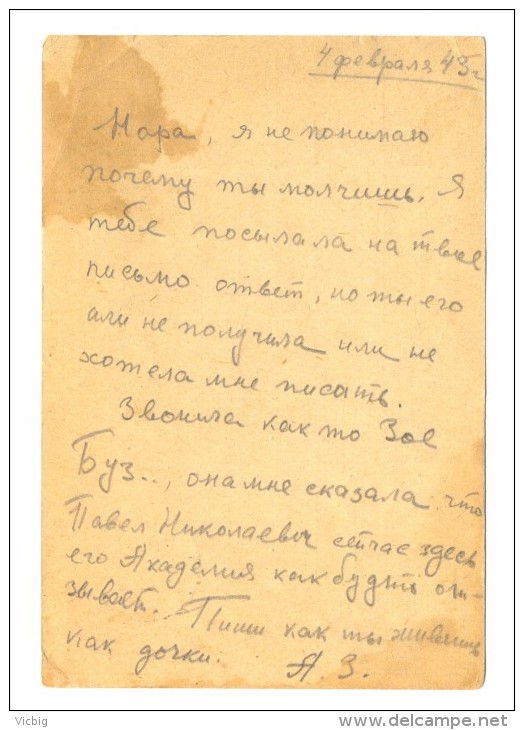 4 февраля 43 г
Нора, я не понимаю
почему ты молчишь. Я
тебе посылала на твое
письмо ответ, но ты его
или не получила или не
хотела мне писать.
Звонила как то Зое
Буз.., она мне сказала что
Павел Николаевич сейчас здесь
его Академия как будто от-
зывает. Пиши как ты живешь
как дочки. А. З.
Vicbig
delcampe.net